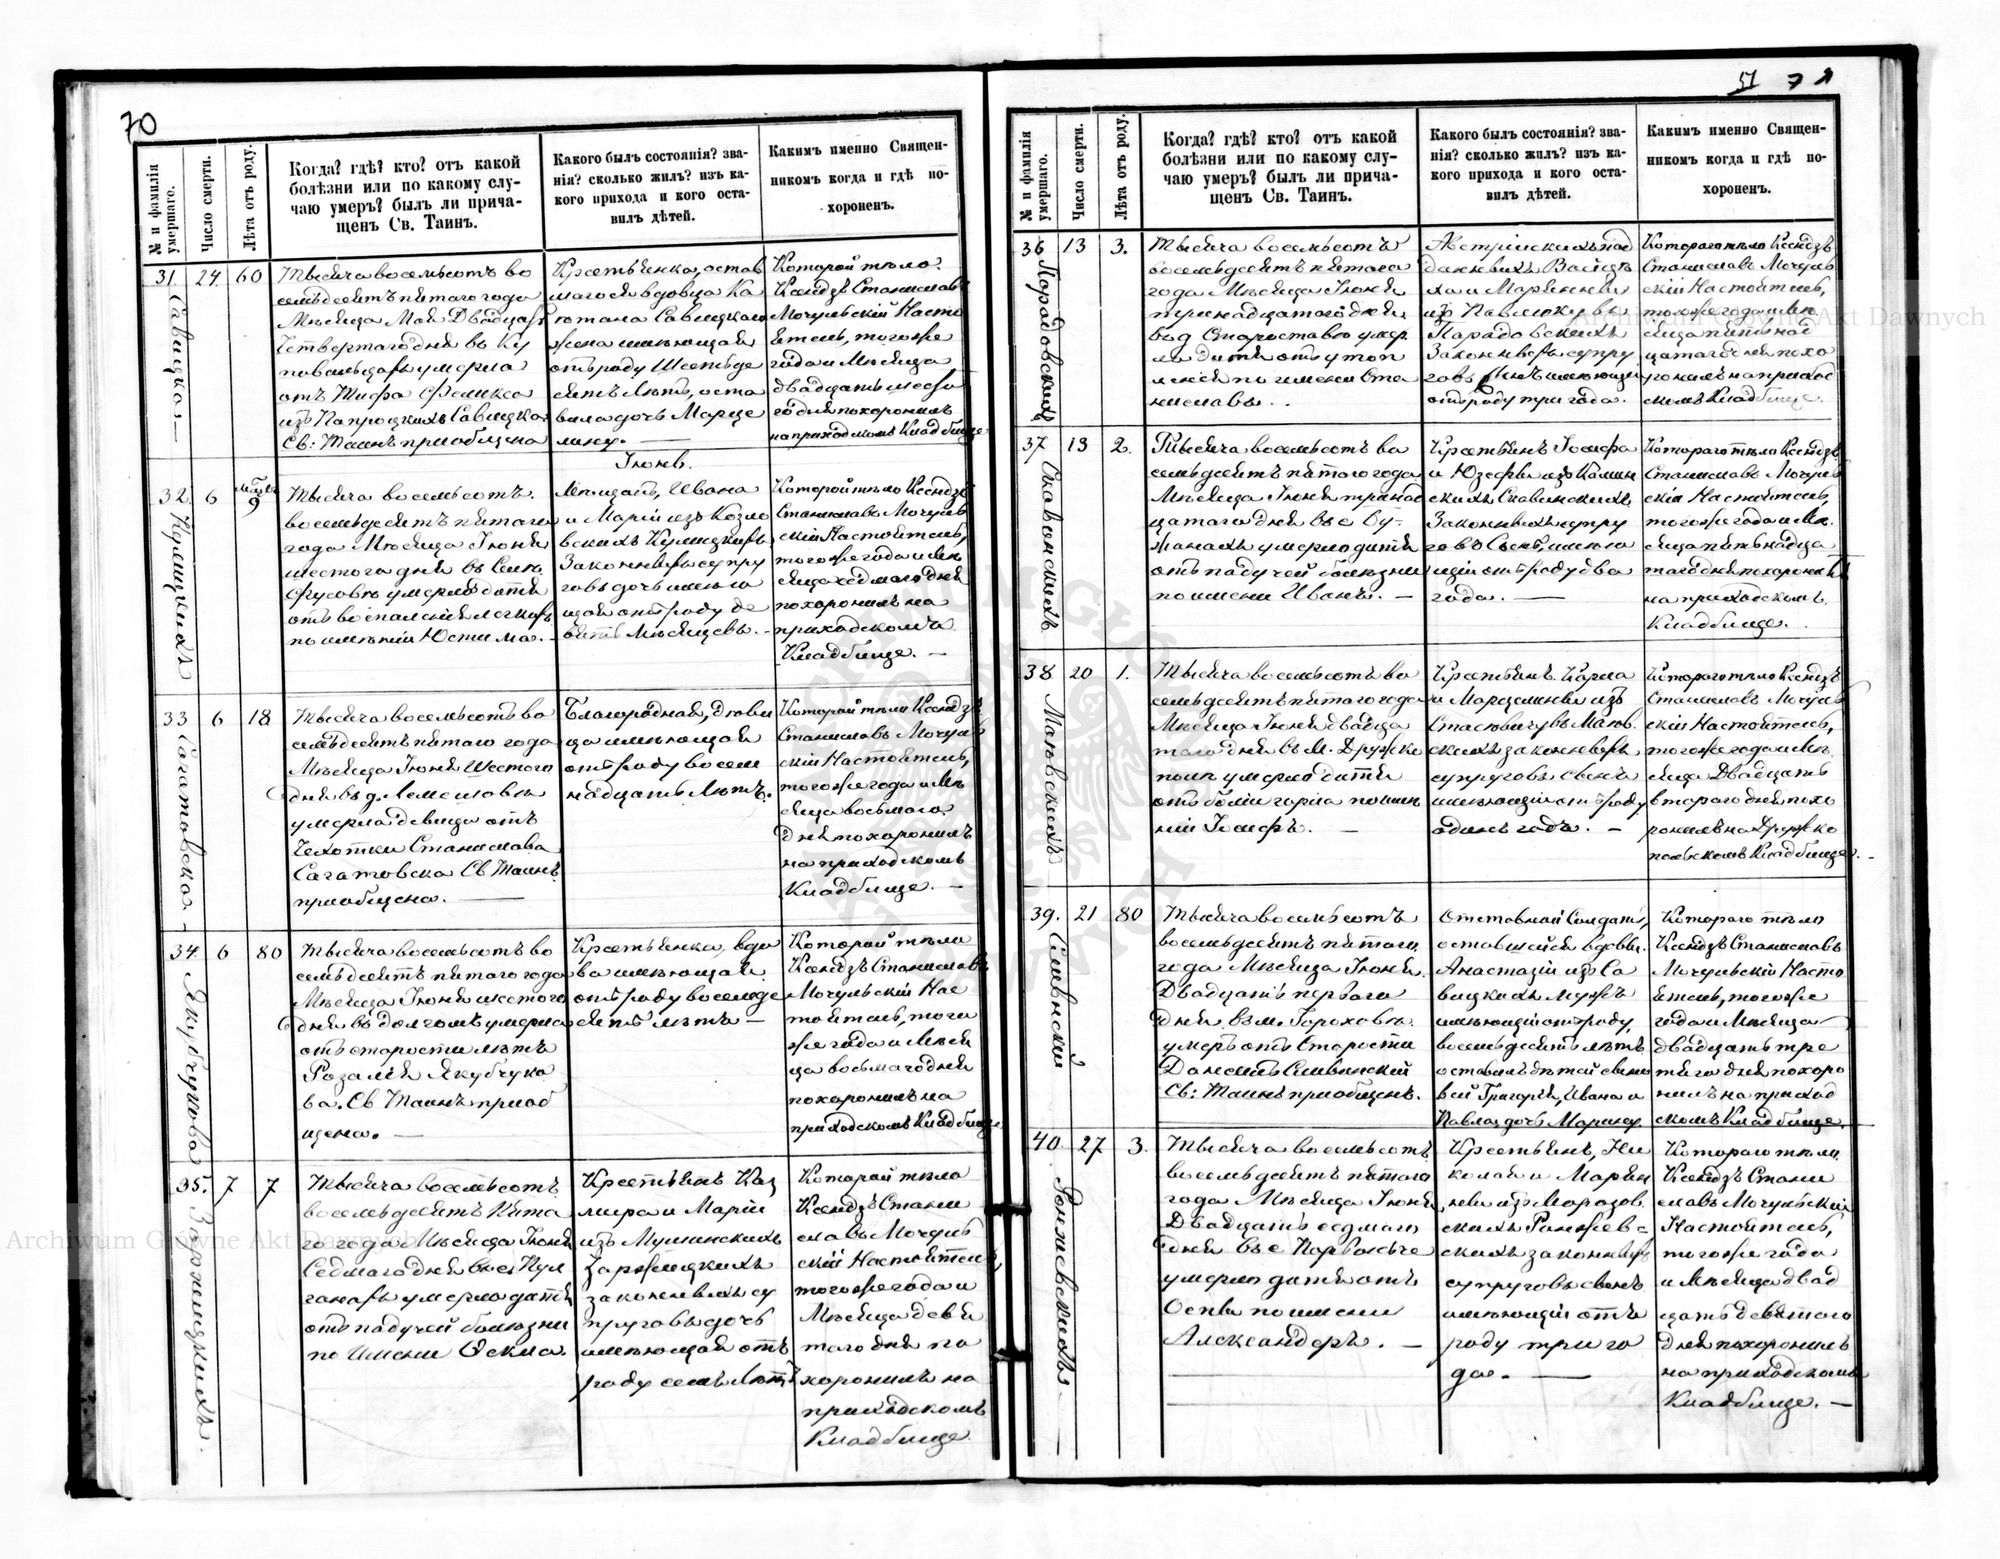 70
№ и фамилія умершаго.
Число смерти.
Лѣта отъ роду.
Когда? гдѣ? кто? отъ какой
болѣзни или по какому слу-
чаю умеръ? былъ ли прича-
щенъ Св. Таинъ.
Какого былъ состоянія? зва-
нія? сколько жилъ? изъ ка-
кого прихода и кого оста-
вилъ дѣтей.
Какимъ именно Священ-
никомъ когда и гдѣ по-
хороненъ.
31.
Савицка
24
60
Тысяча восемьсотъ во
семьдесятъ пятаго года
Мѣсяца Мая Двадцать
Четвертаго дня въ
умерла
отъ Тифа Феликса
изъ Папроцкихъ Савицка
Св: Таинъ приобщена
Крестьянка, остав
шагося вдовца Ка
Савицкаго
жена имѣющая
отъ роду Шестьде
сятъ Лѣтъ, оста
вила дочь Марце
лину.
Которой тѣло
Ксендзъ Станиславъ
Мочульскій Насто
ятель, тогоже
года и Мѣсяца
двадцать шеста
го дня похоронилъ
на приходскомъ Кладбище
Іюнь.
32
6
9
Тысяча восемьсотъ
восемьдесятъ пятаго
года Мѣсяца Іюня
шестого дня въ
умерло дитя
отъ воспаленія легкихъ
по имѣніи Юстина.
Мѣщанъ, Ивана
и Маріи изъ Козло
вскихъ
Законныхъ супру
говъ дочь имѣю
щая отъ роду де
вять Мѣсяцевъ.
Которой тѣло Ксендзъ
Станиславъ Мочуль
скій Настоятель,
тогоже года и Мѣ
сяца седмаго дня
похоронилъ на
приходскомъ
Кладбище.
33
Сагатовска
6
18
Тысяча восемьсотъ во
семьдесятъ пятаго года
Мѣсяца Іюня Шестого
дня въ д.
умерла девица отъ
Чехотки Станислава
Сагатовска Св Таинъ
приобщена.
Благородная, деви
ца имѣющая
отъ роду восем
надцать Лѣтъ.
Которой тѣло Ксендзъ
Станиславъ Мочуль
скій Настоятель,
тогоже года и Мѣ
сяца восьмаго
дня похоронилъ
на приходскомъ
Кладбище.
34
Якубчукова
6
80
Тысяча восемьсотъ во
семьдесятъ пятаго года
Мѣсяца Іюня шестого
дня въ Долгомъ умерла
отъ старости лѣтъ
Розалія Якубчуко
ва. Св Таинъ приоб
щена.
Крестьянка, вдо
ва имѣющая
отъ роду восемьде
сятъ лѣтъ
Которой тѣло
Ксендзъ Станиславъ
Мочульскій Нас
тоятель, того
же года и Мѣся
ца восьмаго дня
похоронилъ на
приходскомъ Кладбище
35.
7
7
Тысяча восемьсотъ
восемьдесятъ Пята
го года Мѣсяца Іюня
Седмаго дня въ с
умерло дитя
отъ падучей болѣзни
по имени
Крестьянъ Каз
мира и Маріи
изъ
законныхъ су
пруговъ дочь
имѣющая отъ
роду семь Лѣтъ
Которой тѣло
Ксендзъ Стани
славъ Мочуль
скій Настоятель,
тогоже года и
Мѣсяца девя
таго дня по
хоронилъ на
приходскомъ
Кладбище
51
71
№ и фамилія умершаго.
Число смерти.
Лѣта отъ роду.
Когда? гдѣ? кто? отъ какой
болѣзни или по какому слу-
чаю умеръ? былъ ли прича-
щенъ Св. Таинъ.
Какого былъ состоянія? зва-
нія? сколько жилъ? изъ ка-
кого прихода и кого оста-
вилъ дѣтей.
Какимъ именно Священ-
никомъ когда и гдѣ по-
хороненъ.
36
Парадовскихъ
13
3.
Тысяча восемьсотъ
восемьдесятъ пятаго
года Мѣсяца Іюня
тринадцатого дня
въ д Староставю умер
ло дитя отъ утоп
ленія по имени Ста
ниславъ.
Австрійскихъ под
данныхъ Войцѣ
ха и Марянны
изъ
Парадовскихъ
Законныхъ супру
говъ Сынъ имѣющи
отъ роду три года.
Котораго тѣло Ксендзъ
Станиславъ Мочуль
скій Настоятель,
тогоже года и Мѣ
сяца пятнад
цатаго дня похо
ронилъ на приход
скомъ Кладбище.
37
Славинскихъ
13
2.
Тысяча восемьсотъ во
семьдесятъ пятаго года
Мѣсяца Іюня тринад
цатаго дня въ с Бу-
жанахъ умерло дитя
отъ падучей болѣзни
по имени Иванъ.
Крестьянъ Іосифа
и Юзефы изъ Калин
скихъ Славинскихъ
Законныхъ супру
говъ Сынъ, имѣю
щій отъ роду два
года.
Котораго тѣло Ксендзъ
Станиславъ Мочуль
скій Настоятель,
тогоже года и Мѣ
сяца пятнадца
таго дня похоронилъ
на приходскомъ
Кладбище.
38
Маювскихъ
20
1.
Тысяча восемьсотъ во
семьдесятъ пятаго года
Мѣсяца Іюня двадца
таго дня въ М. Дружко
поль умерло дитя
отъ боли горла по имѣ
ніи Іосифъ.
Крестьянъ Карла
и Марцелины изъ
Маюв
скихъ законныхъ
супруговъ сынъ
имѣющій отъ роду
одинъ годъ.
Котораго тѣло Ксендзъ
Станиславъ Мочуль
скій Настоятель,
тогоже года и Мѣ
сяца Двадцать
втораго дня похо
ронилъ на Дружко
польскомъ Кладбище.
39.
Сливинскій
21
80
Тысяча восемьсотъ
восемьдесятъ пятаго
года Мѣсяца Іюня
Двадцать перваго
дня въ м. Гороховѣ
умеръ отъ Старости
Сливинскій
Св: Таинъ приобщенъ.
Отставной Солдатъ,
оставшейся вдовы
Анастазіи изъ Са
вицкихъ мужъ
имѣющій отъ роду
восемьдесятъ лѣтъ
оставилъ дѣтей сыно
вей Григорія, Ивана и
Павла дочь
Котораго тѣло
Ксендзъ Станиславъ
Мочульскій Насто
ятель, тогоже
года и Мѣсяца
двадцать тре
тяго дня похоро
нилъ на приход
скомъ Кладбище.
40
27
3.
Тысяча восемьсотъ
восемьдесятъ пятаго
года Мѣсяца Іюня
Двадцать седмаго
дня въ с
умерло дитя отъ
Оспы по имени
Александеръ.
Крестьянъ, Ни
колая и Марян
ны изъ Морозов
скихъ
скихъ законныхъ
супруговъ сынъ
имѣющій отъ
роду три го
да.
Котораго тѣло
Ксендзъ Стани
славъ Мочульскій
Настоятель,
тогоже года
и Мѣсяца двад
цать девятого
дня похоронилъ
на приходскомъ
Кладбище.
Archiwum Główne Akt Dawnych
Archiwum Główne Akt Dawnych